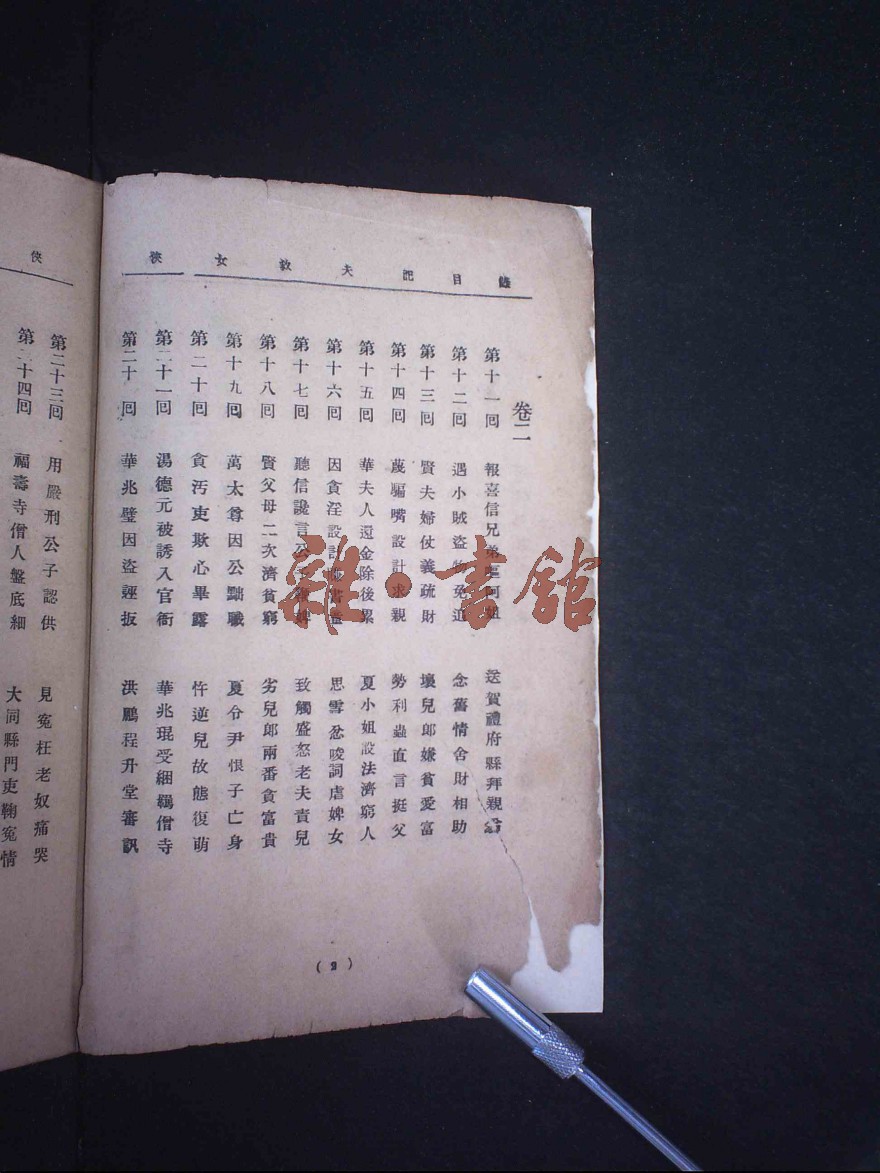 俠女救夫記目錄
卷二
第十一回 報喜信兄弟 阿姐 送賀禮府縣拜親翁
第十二回 遇小賊盜物免追 念舊情舍財相助
第十三回 賢夫婦仗義疏財 壞兒郎嫌貧愛富
第十四回 蔑騙嘴設計求親 勢利蟲直言挺父
第十五回 華夫人還金除後累 夏小姐設法濟窮人
第十六回 因貪淫設計 思雪忿唆詞虐婢女
第十七回 聽信讒言公子 婢 致觸盛怒老夫責兒
第十八回 賢父母二次濟貧窮 劣兒郎兩番貪富貴
第十九回 萬太尊因公黜職 夏令尹恨子亡身
第二十回 貪汚吏欺心畢露 忤逆兒故態復萌
第二十一回 湯德元被誘入官衙 華兆琨受細羈僧寺
第二十 回 華兆璧因盜誣扳 洪鵬程升堂審訊
(2)
俠
第二十三回 用嚴刑公子認供 見冤枉老奴痛哭
第二十四回 福壽寺僧人盤底細 大同縣門吏鞠冤情
雜·書館